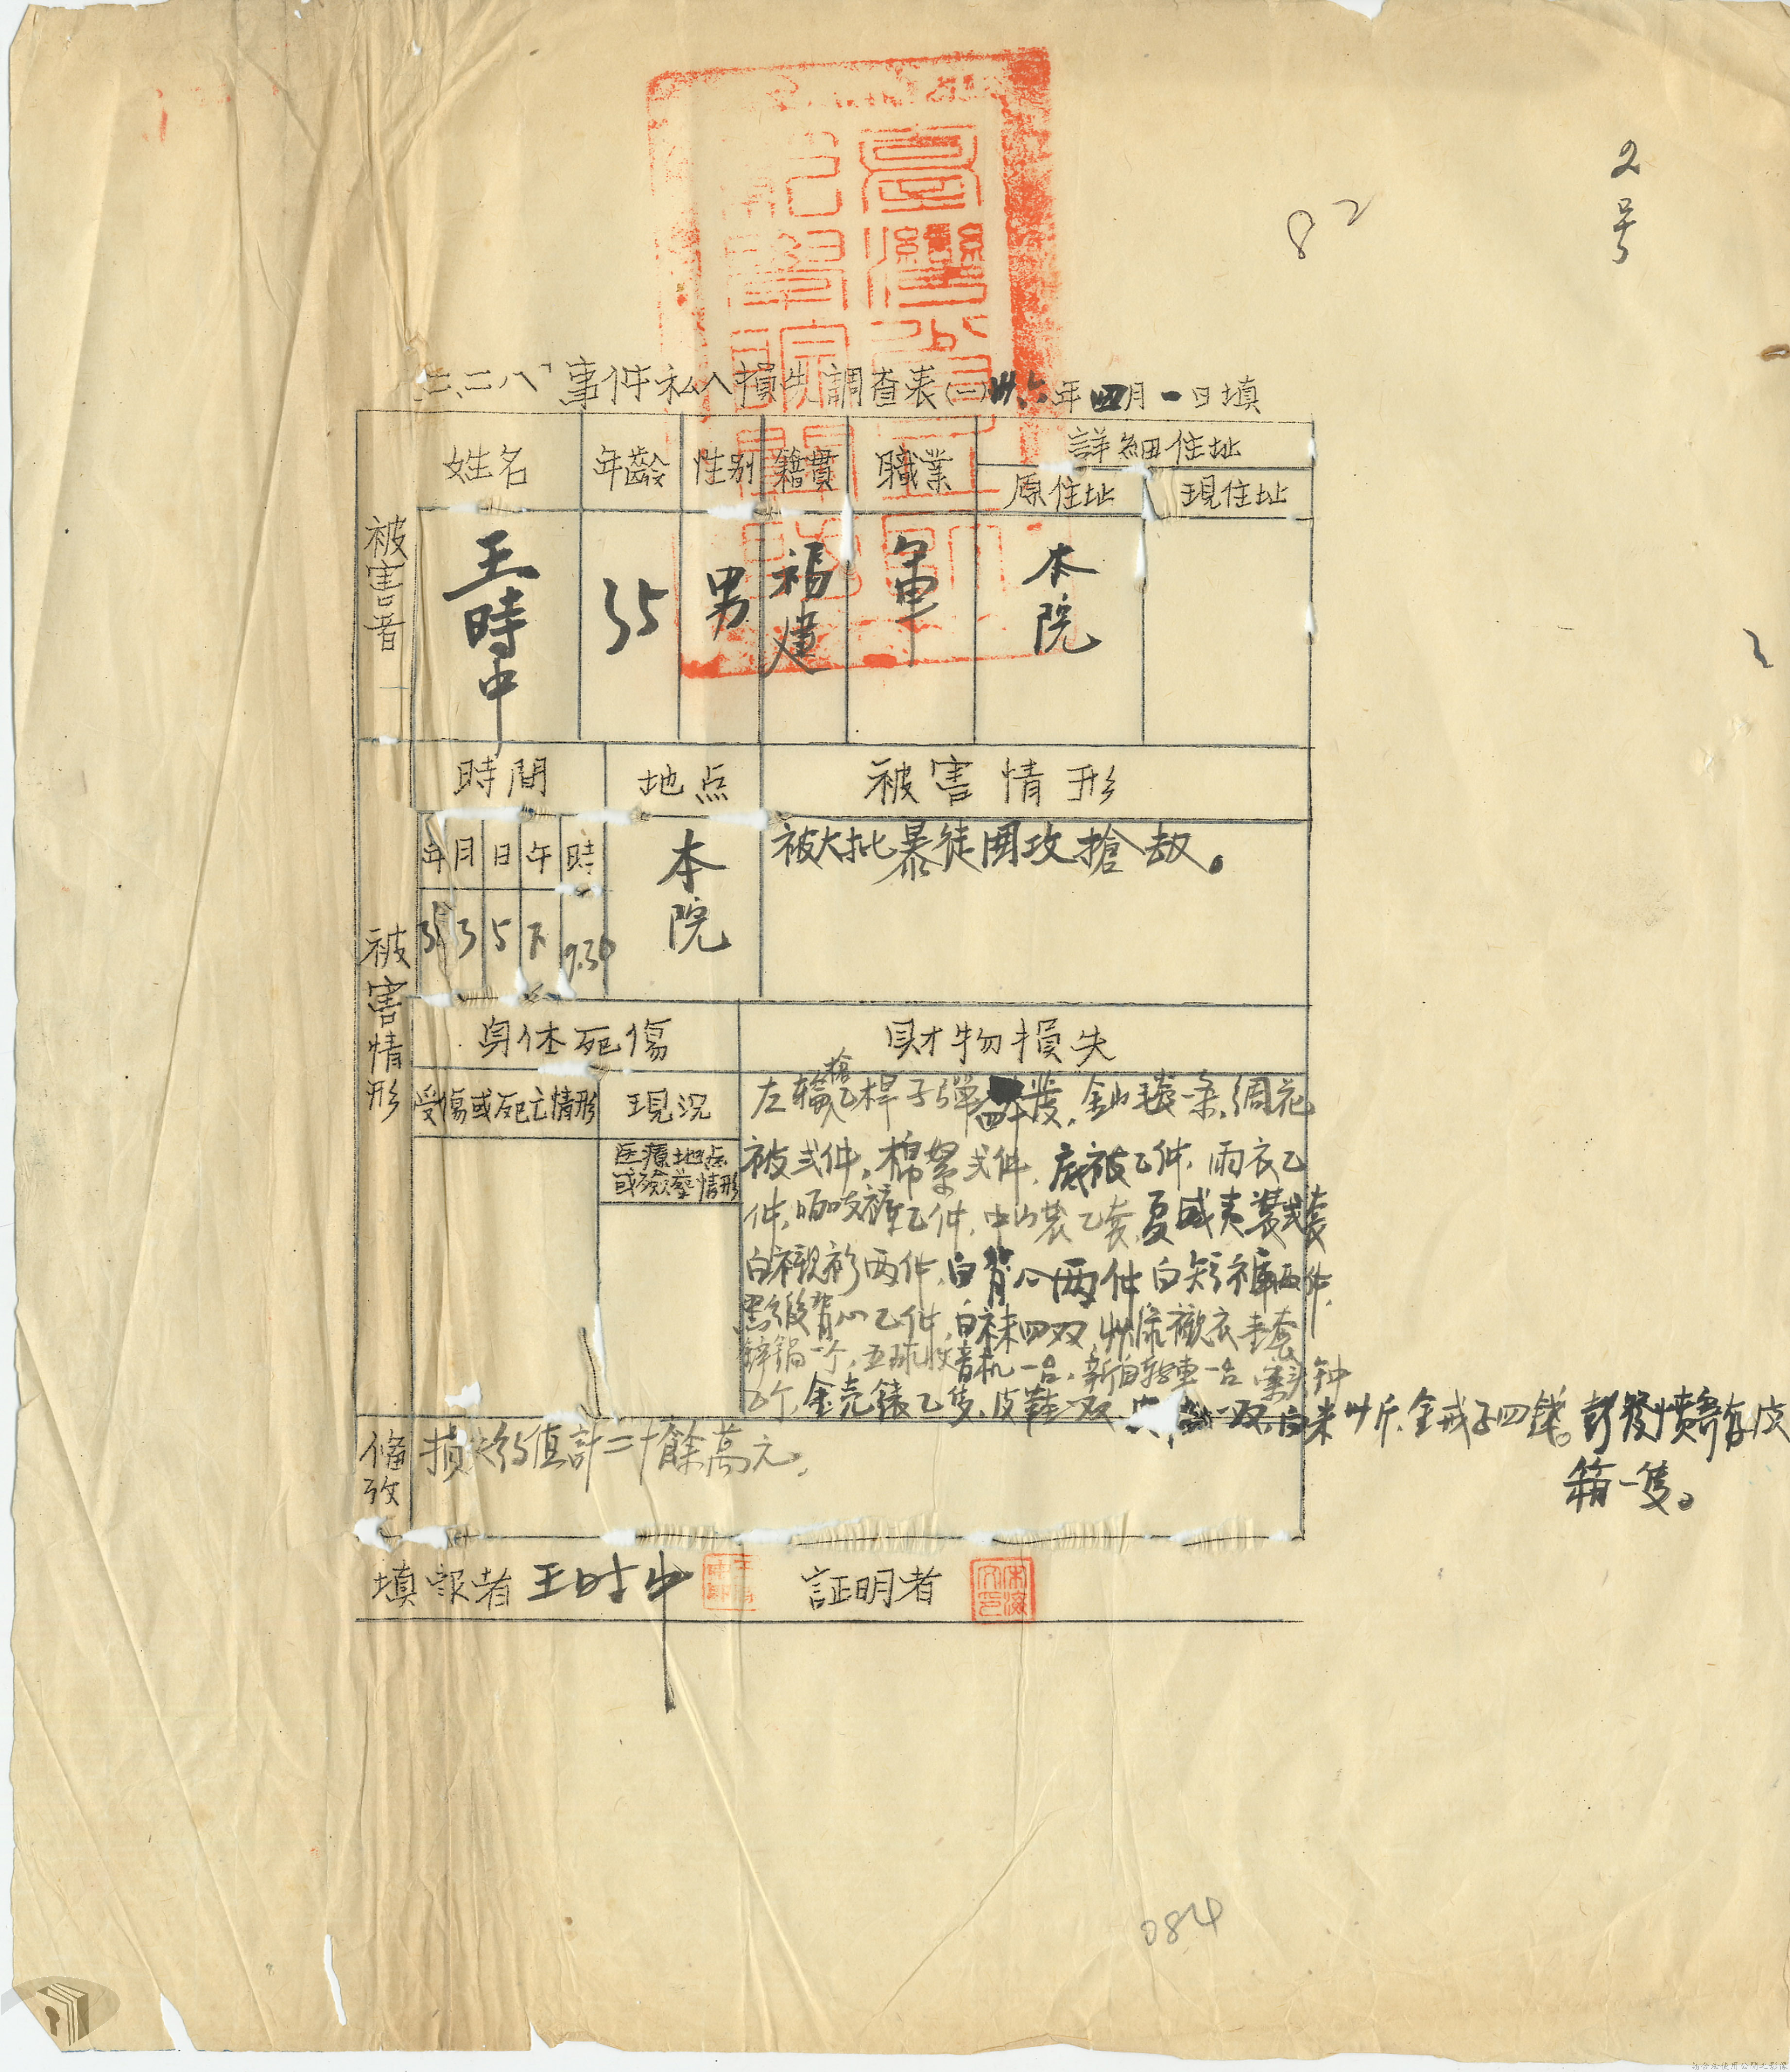 2号
82
「二、二八」事件私人損失調查表(一) 卅六年四月一日填
被害者
姓名 年齡 性別 籍貫 職業 詳細住址
原住址 現住址
王時中 35 男 福建 軍 本院
被害情形
時間 地点 被害情形
年 月 日 午 時
3 5 下 9.30
本院
被大批暴徒圍攻搶劫。
身体死傷 財物損失
受傷或死亡情形 現況
医療地点
或殮塟情形
左輪槍乙桿子彈 發、金山毯一条、綢花
被弍件、棉絮弍件、底被乙件、雨衣乙
件、嗶吱褲乙件、中山裝乙套、夏威夷裝弍套
白襯衫两件、白背心两件白短褲两件、
黑緞背心乙件、白袜四双、 襯衣 套
鋅鍋一个、五球收音机一台、新自轉車一台 鬧钟
乙个、金壳錶乙隻、皮鞋一双、 一双、白米卅斤、金戒子四錢。彭發 寄存皮
箱一隻。
備攷
損失約值計二十餘萬元、
填報者 王时中 証明者
084